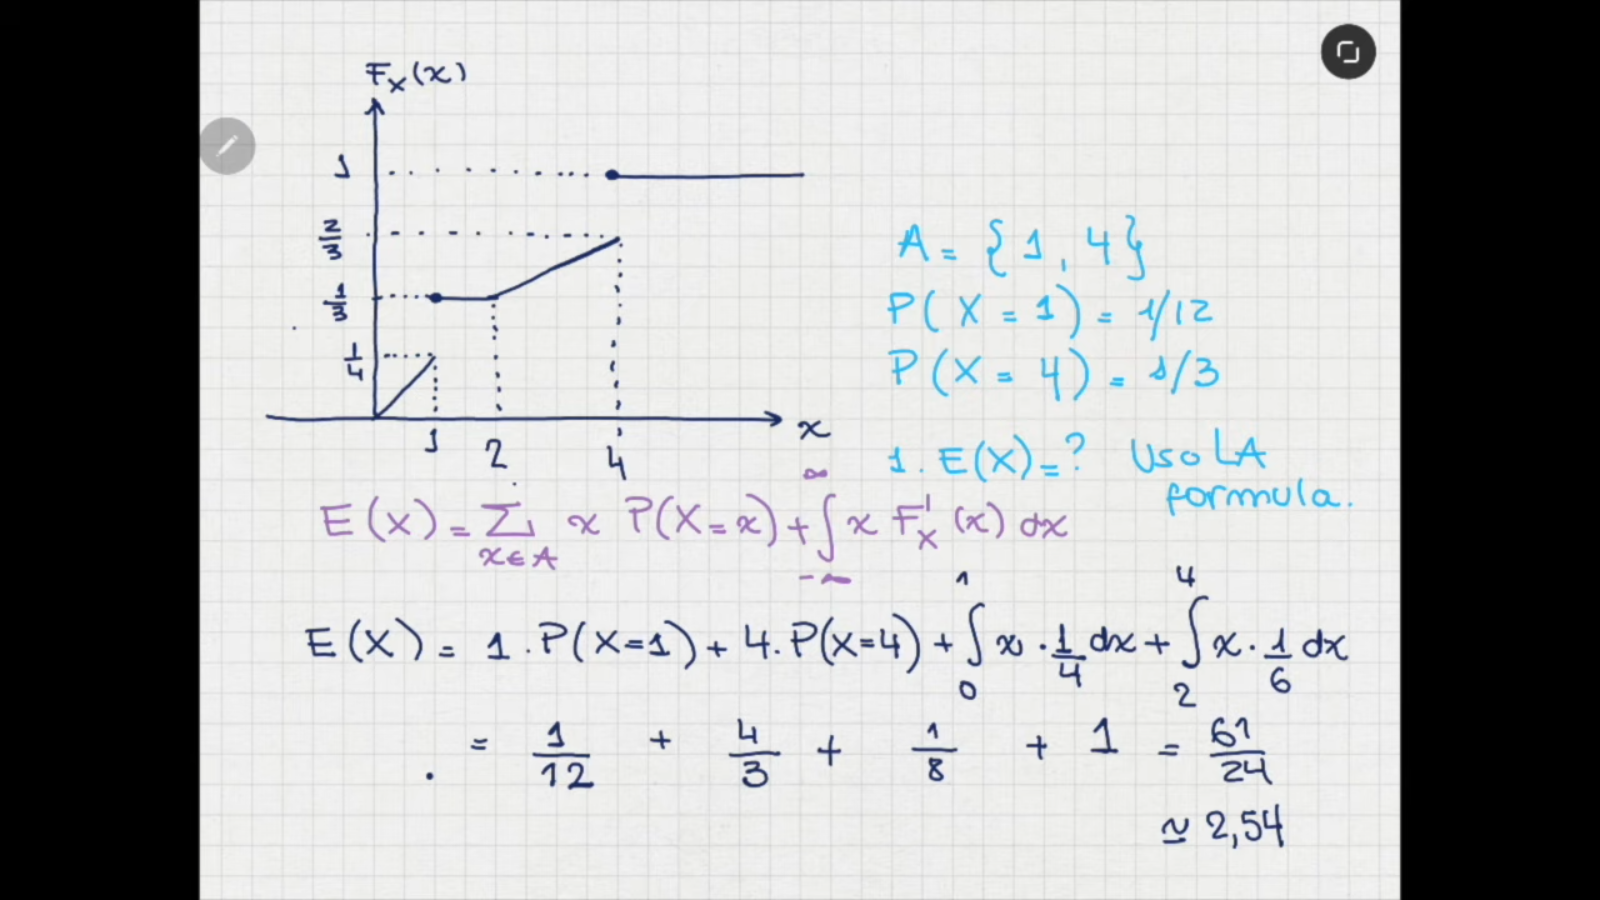 F_X(x)
1
2/3
1/3
1/4
1 2 4 x
A = {1, 4}
P(X = 1) = 1/12
P(X = 4) = 1/3
1. E(X) = ? Uso LA
formula.
E(X) = ∑_{x∈A} x P(X=x) + ∫_{-∞}^{∞} x F'_X(x) dx
E(X) = 1 · P(X=1) + 4 · P(X=4) + ∫_0^1 x · 1/4 dx + ∫_2^4 x · 1/6 dx
= 1/12 + 4/3 + 1/8 + 1 = 61/24
≃ 2,54